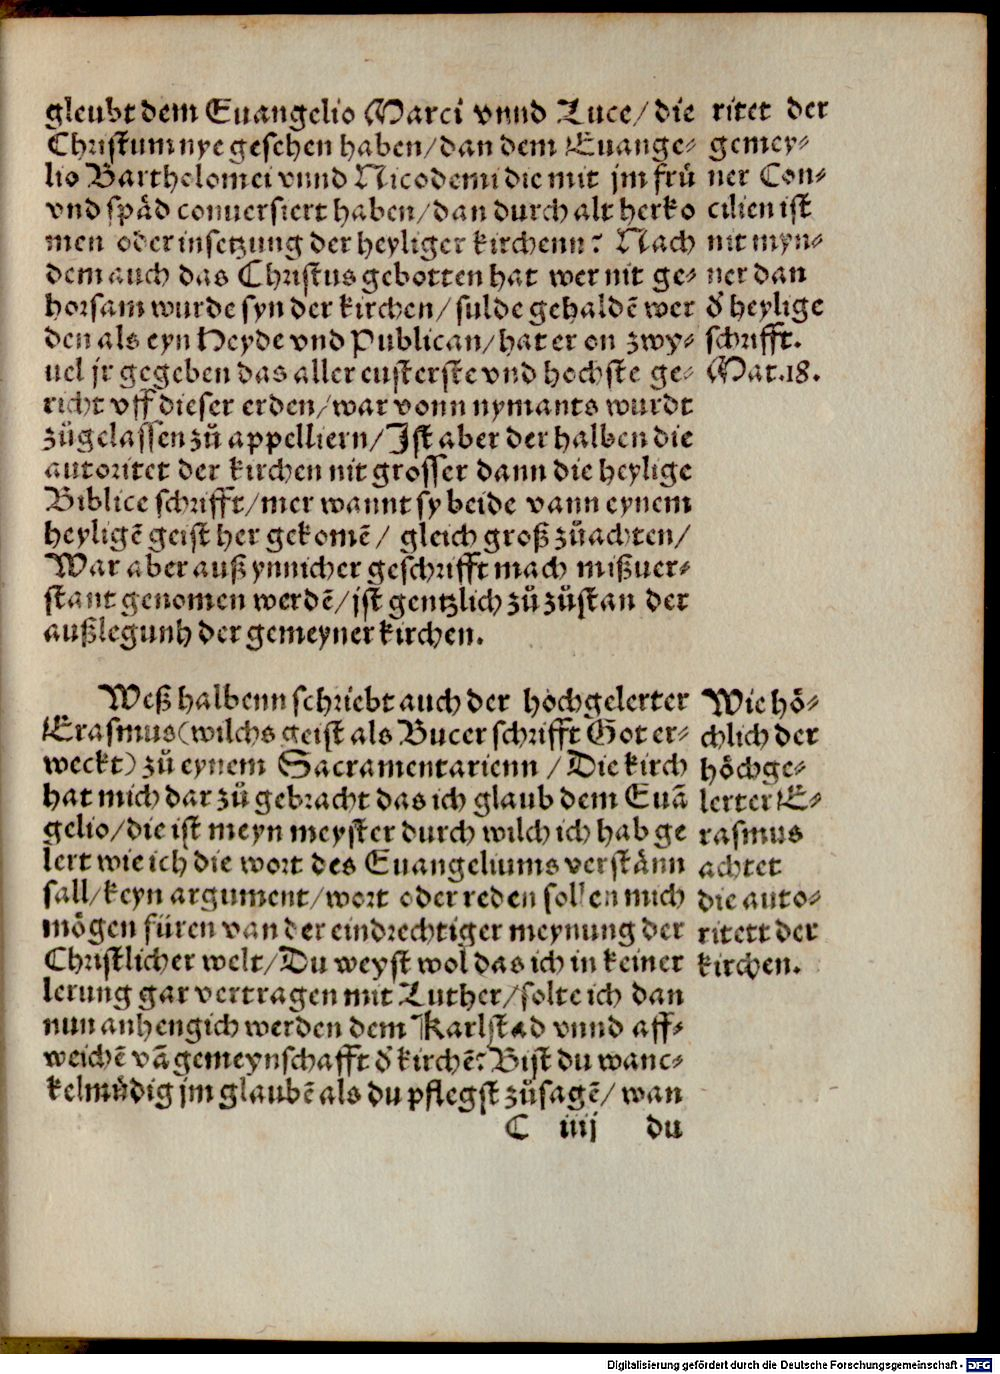 gleubt dem Euangelio Marci vnnd Luce/ die
Christum nye gesehen haben/ dan dem Euange⸗
lio Bartholomei vnnd Nicodemi die mit jm frů
vnd spåd conuersiert haben/ dan durch alt herko
men oder insetzung der heyliger kirchenn? Nach
dem auch das Christus gebotten hat wer nit ge⸗
horsam wurde syn der kirchen/ sulde gehaldē wer
den als eyn Heyde vnd Publican/ hat er on zwy⸗
uel jr gegeben das aller eusterste vnd hochste ge⸗
richt vff dieser erden/ war vonn nymants wurdt
zůgelassen zů appelliern/ Jst aber der halben die
autoritet der kirchen nit grosser dann die heylige
Biblice schrifft/ mer wannt sy beide vann eynem
heyligē geist her gekomē/ gleich groß zůachten/
War aber auß ynnicher geschrifft mach mißuer⸗
stant genomen werdē/ jst gentzlich zů zůstan der
außlegunh der gemeyner kirchen.
ritet der
gemey⸗
ner Con⸗
cilien ist
nit myn⸗
ner dan
d̕ heylige
schrifft.
Mat.18.
Weß halbenn schriebt auch der hochgelerter
Erasmus (wilchs geist als Bucer schrifft Got er⸗
weckt) zů eynem Sacramentarienn / Die kirch
hat mich dar zů gebracht das ich glaub dem Euā
gelio/ die ist meyn meyster durch wilch ich hab ge
lert wie ich die wort des Euangeliums verstånn
sall/ keyn argument/ wort oder reden sollen mich
mögen füren van der eindrechtiger meynung der
Christlicher welt/ Du weyst wol das ich in keiner
lerung gar vertragen mit Luther/ solte ich dan
nun anhengich werden dem Karlstad vnnd aff⸗
weichē vā gemeynschafft d̕ kirchē? Bist du wanc⸗
kelmůdig jm glaubē als du pflegst zůsagē/ wan
Wie hö⸗
chlich der
höchge⸗
lerter E⸗
rasmus
achtet
die auto⸗
ritett der
kirchen.
C iiij du
Digitalisierung gefördert durch die Deutsche Forschungsgemeinschaft - DFG